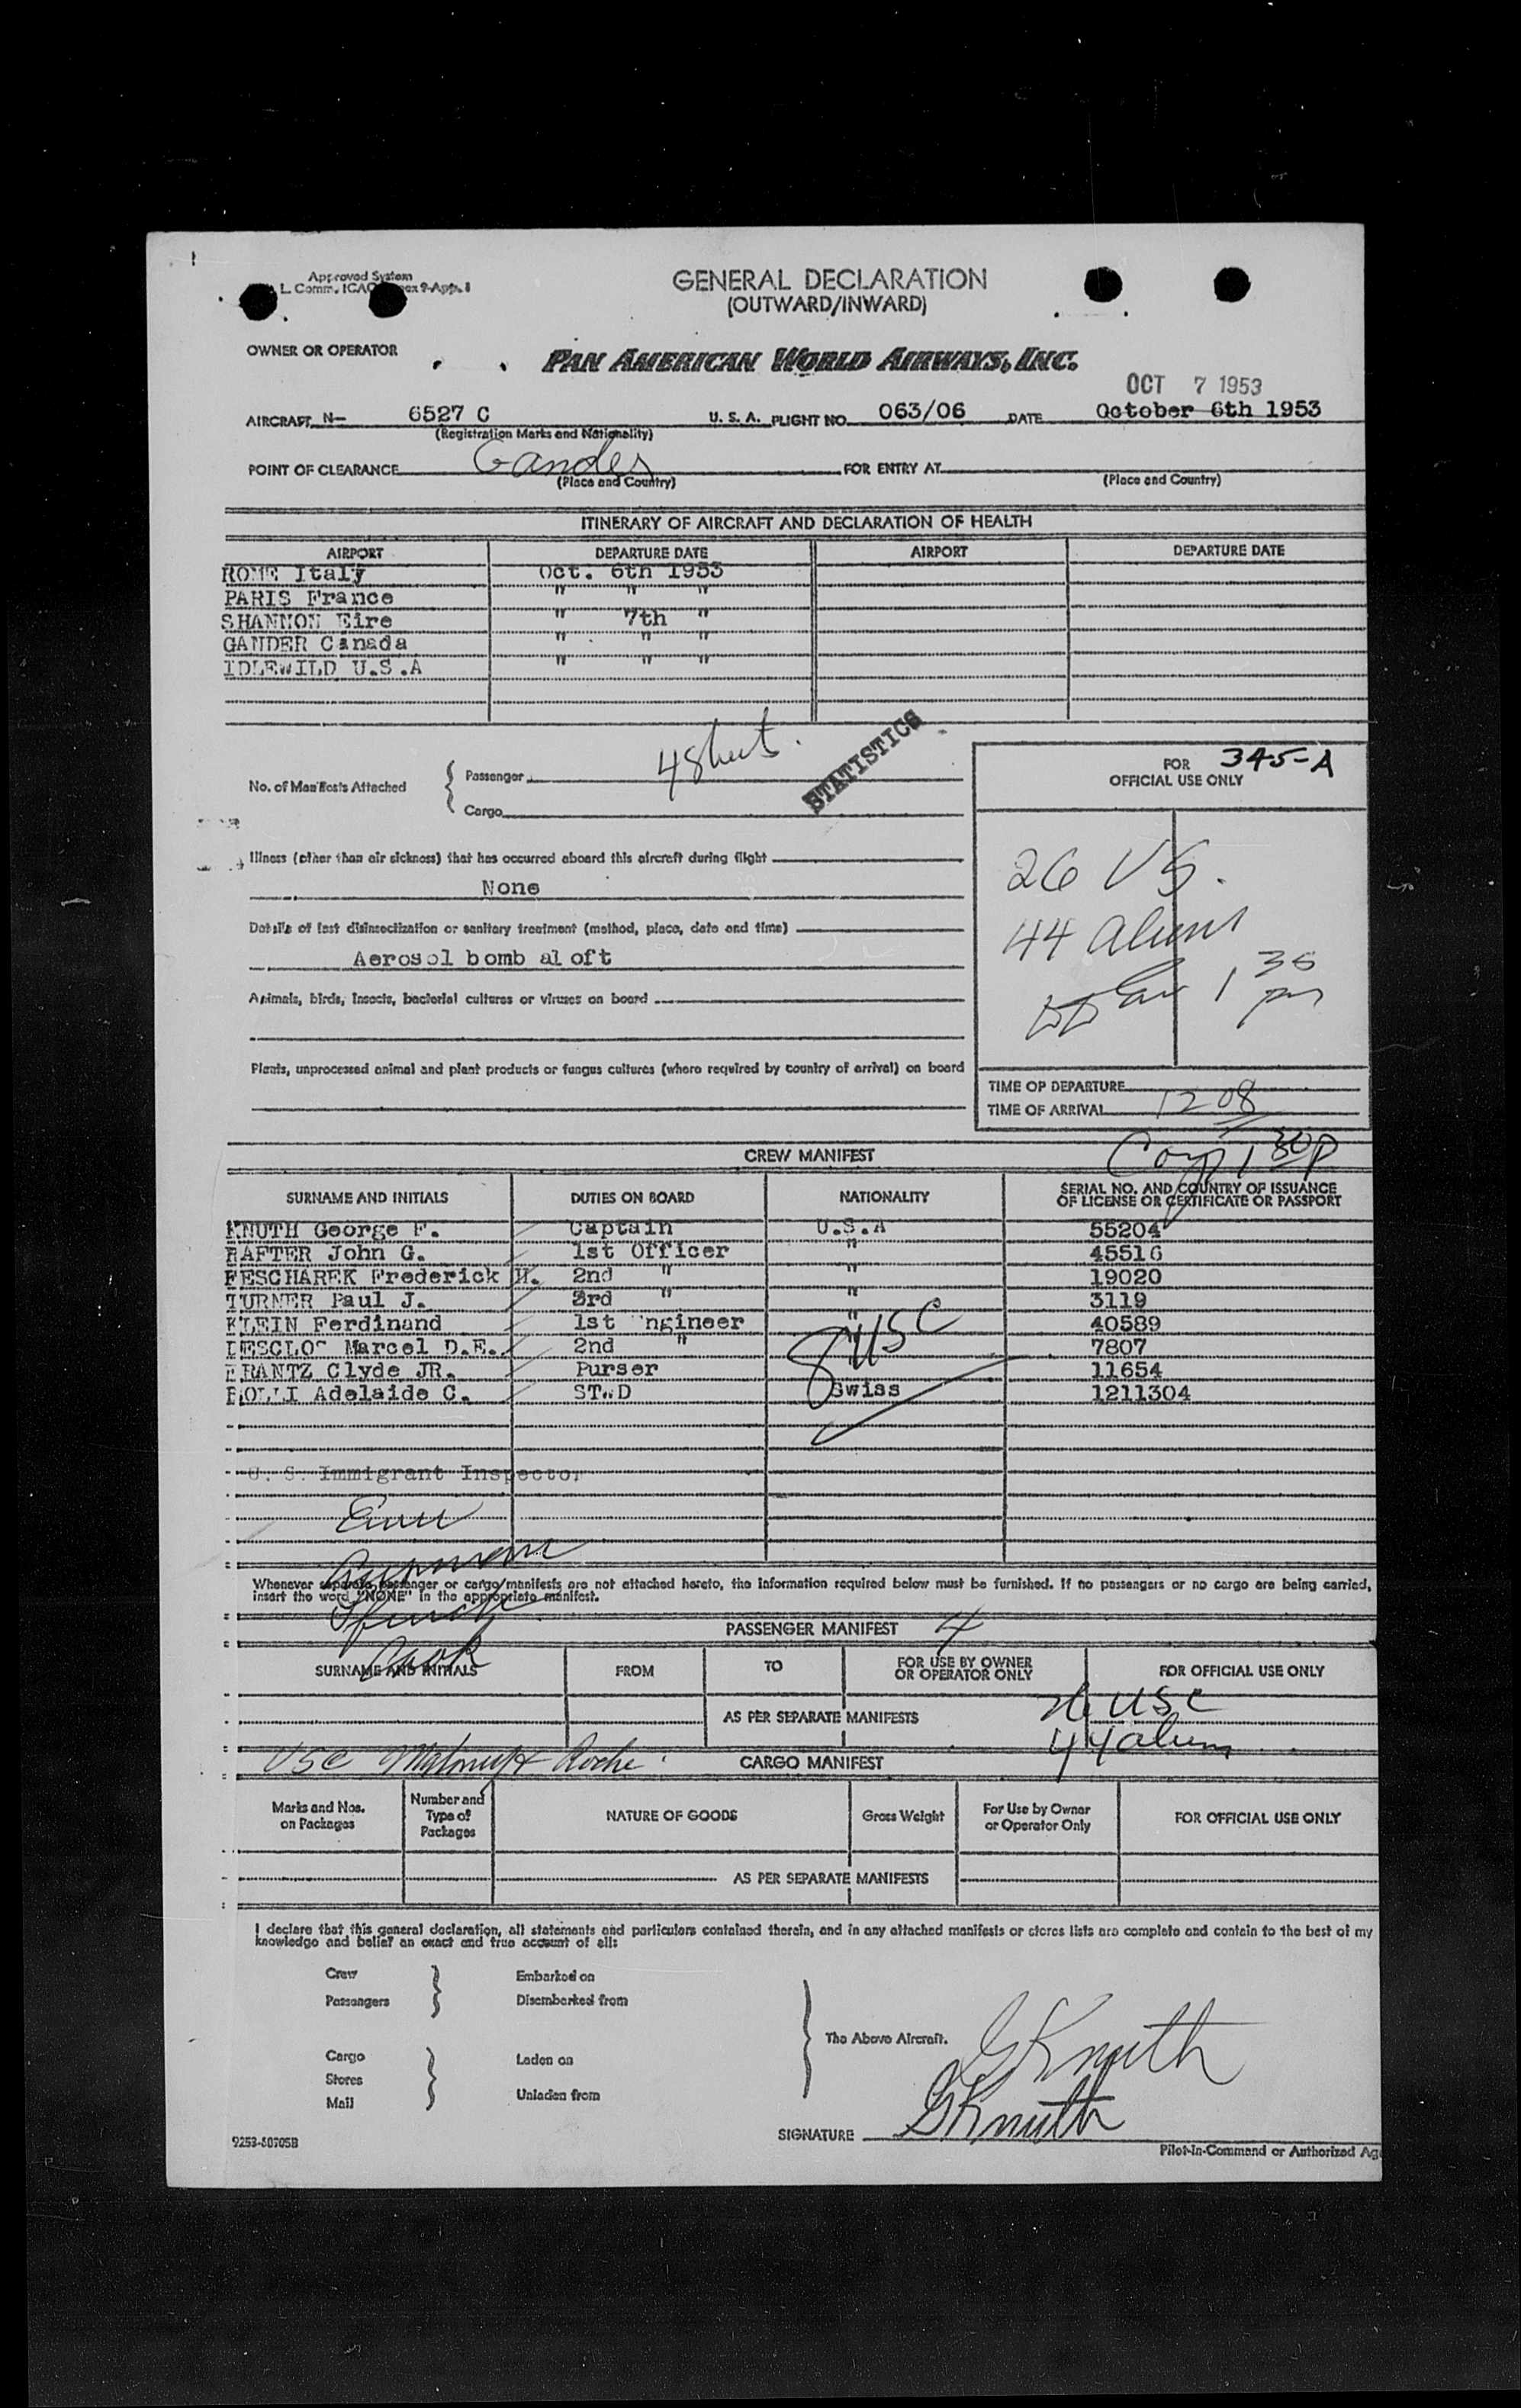 Approved System
L. Comm. ICAO Annex 9-App. 1
GENERAL DECLARATION
(OUTWARD/INWARD)
OWNER OR OPERATOR
PAN AMERICAN WORLD AIRWAYS, INC.
OCT 7 1953
AIRCRAFT N- 6527 C U. S. A. FLIGHT NO. 063/06 DATE October 6th 1953
(Registration Marks and Nationality)
POINT OF CLEARANCE Gander FOR ENTRY AT
(Place and Country) (Place and Country)
ITINERARY OF AIRCRAFT AND DECLARATION OF HEALTH
AIRPORT DEPARTURE DATE AIRPORT DEPARTURE DATE
ROME Italy Oct. 6th 1953
PARIS France " " "
SHANNON Eire " 7th "
GANDER Canada " " "
IDLEWILD U.S.A " " "
4 Sheets.
STATISTICS
No. of Manifests Attached
Passenger
Cargo
FOR 345-A
OFFICIAL USE ONLY
26 US.
44 aliens
1 35 pm
Illness (other than air sickness) that has occurred aboard this aircraft during flight
None
Details of last disinsectization or sanitary treatment (method, place, date and time)
Aerosol bomb aloft
Animals, birds, insects, bacterial cultures or viruses on board
Plants, unprocessed animal and plant products or fungus cultures (where required by country of arrival) on board
TIME OF DEPARTURE
TIME OF ARRIVAL 1208
1 30 p
CREW MANIFEST
SURNAME AND INITIALS DUTIES ON BOARD NATIONALITY SERIAL NO. AND COUNTRY OF ISSUANCE
OF LICENSE OR CERTIFICATE OR PASSPORT
KNUTH George F. Captain U.S.A 55204
RAFTER John G. 1st Officer " 45516
PESCHAREK Frederick H. 2nd " " 19020
TURNER Paul J. 3rd " " 3119
KLEIN Ferdinand 1st Engineer " 40589
Marcel D.E. 2nd " " 7807
Clyde JR. Purser 11654
Adelaide C. STWD Swiss 1211304
8 USC
U. S. Immigrant Inspector
Whenever separate passenger or cargo manifests are not attached hereto, the information required below must be furnished. If no passengers or no cargo are being carried,
insert the word "NONE" in the appropriate manifest.
PASSENGER MANIFEST 4
Cook
SURNAME AND INITIALS FROM TO FOR USE BY OWNER
OR OPERATOR ONLY FOR OFFICIAL USE ONLY
26 USC
AS PER SEPARATE MANIFESTS
44 aliens
USC Roche
CARGO MANIFEST
Marks and Nos.
on Packages Number and
Type of
Packages NATURE OF GOODS Gross Weight For Use by Owner
or Operator Only FOR OFFICIAL USE ONLY
AS PER SEPARATE MANIFESTS
I declare that this general declaration, all statements and particulars contained therein, and in any attached manifests or stores lists are complete and contain to the best of my
knowledge and belief an exact and true account of all:
Crew Embarked on
Passengers Disembarked from
The Above Aircraft.
Cargo Laden on
Stores
Mail Unladen from
G Knuth
SIGNATURE G Knuth
Pilot-in-Command or Authorized Ag
9253-50705B